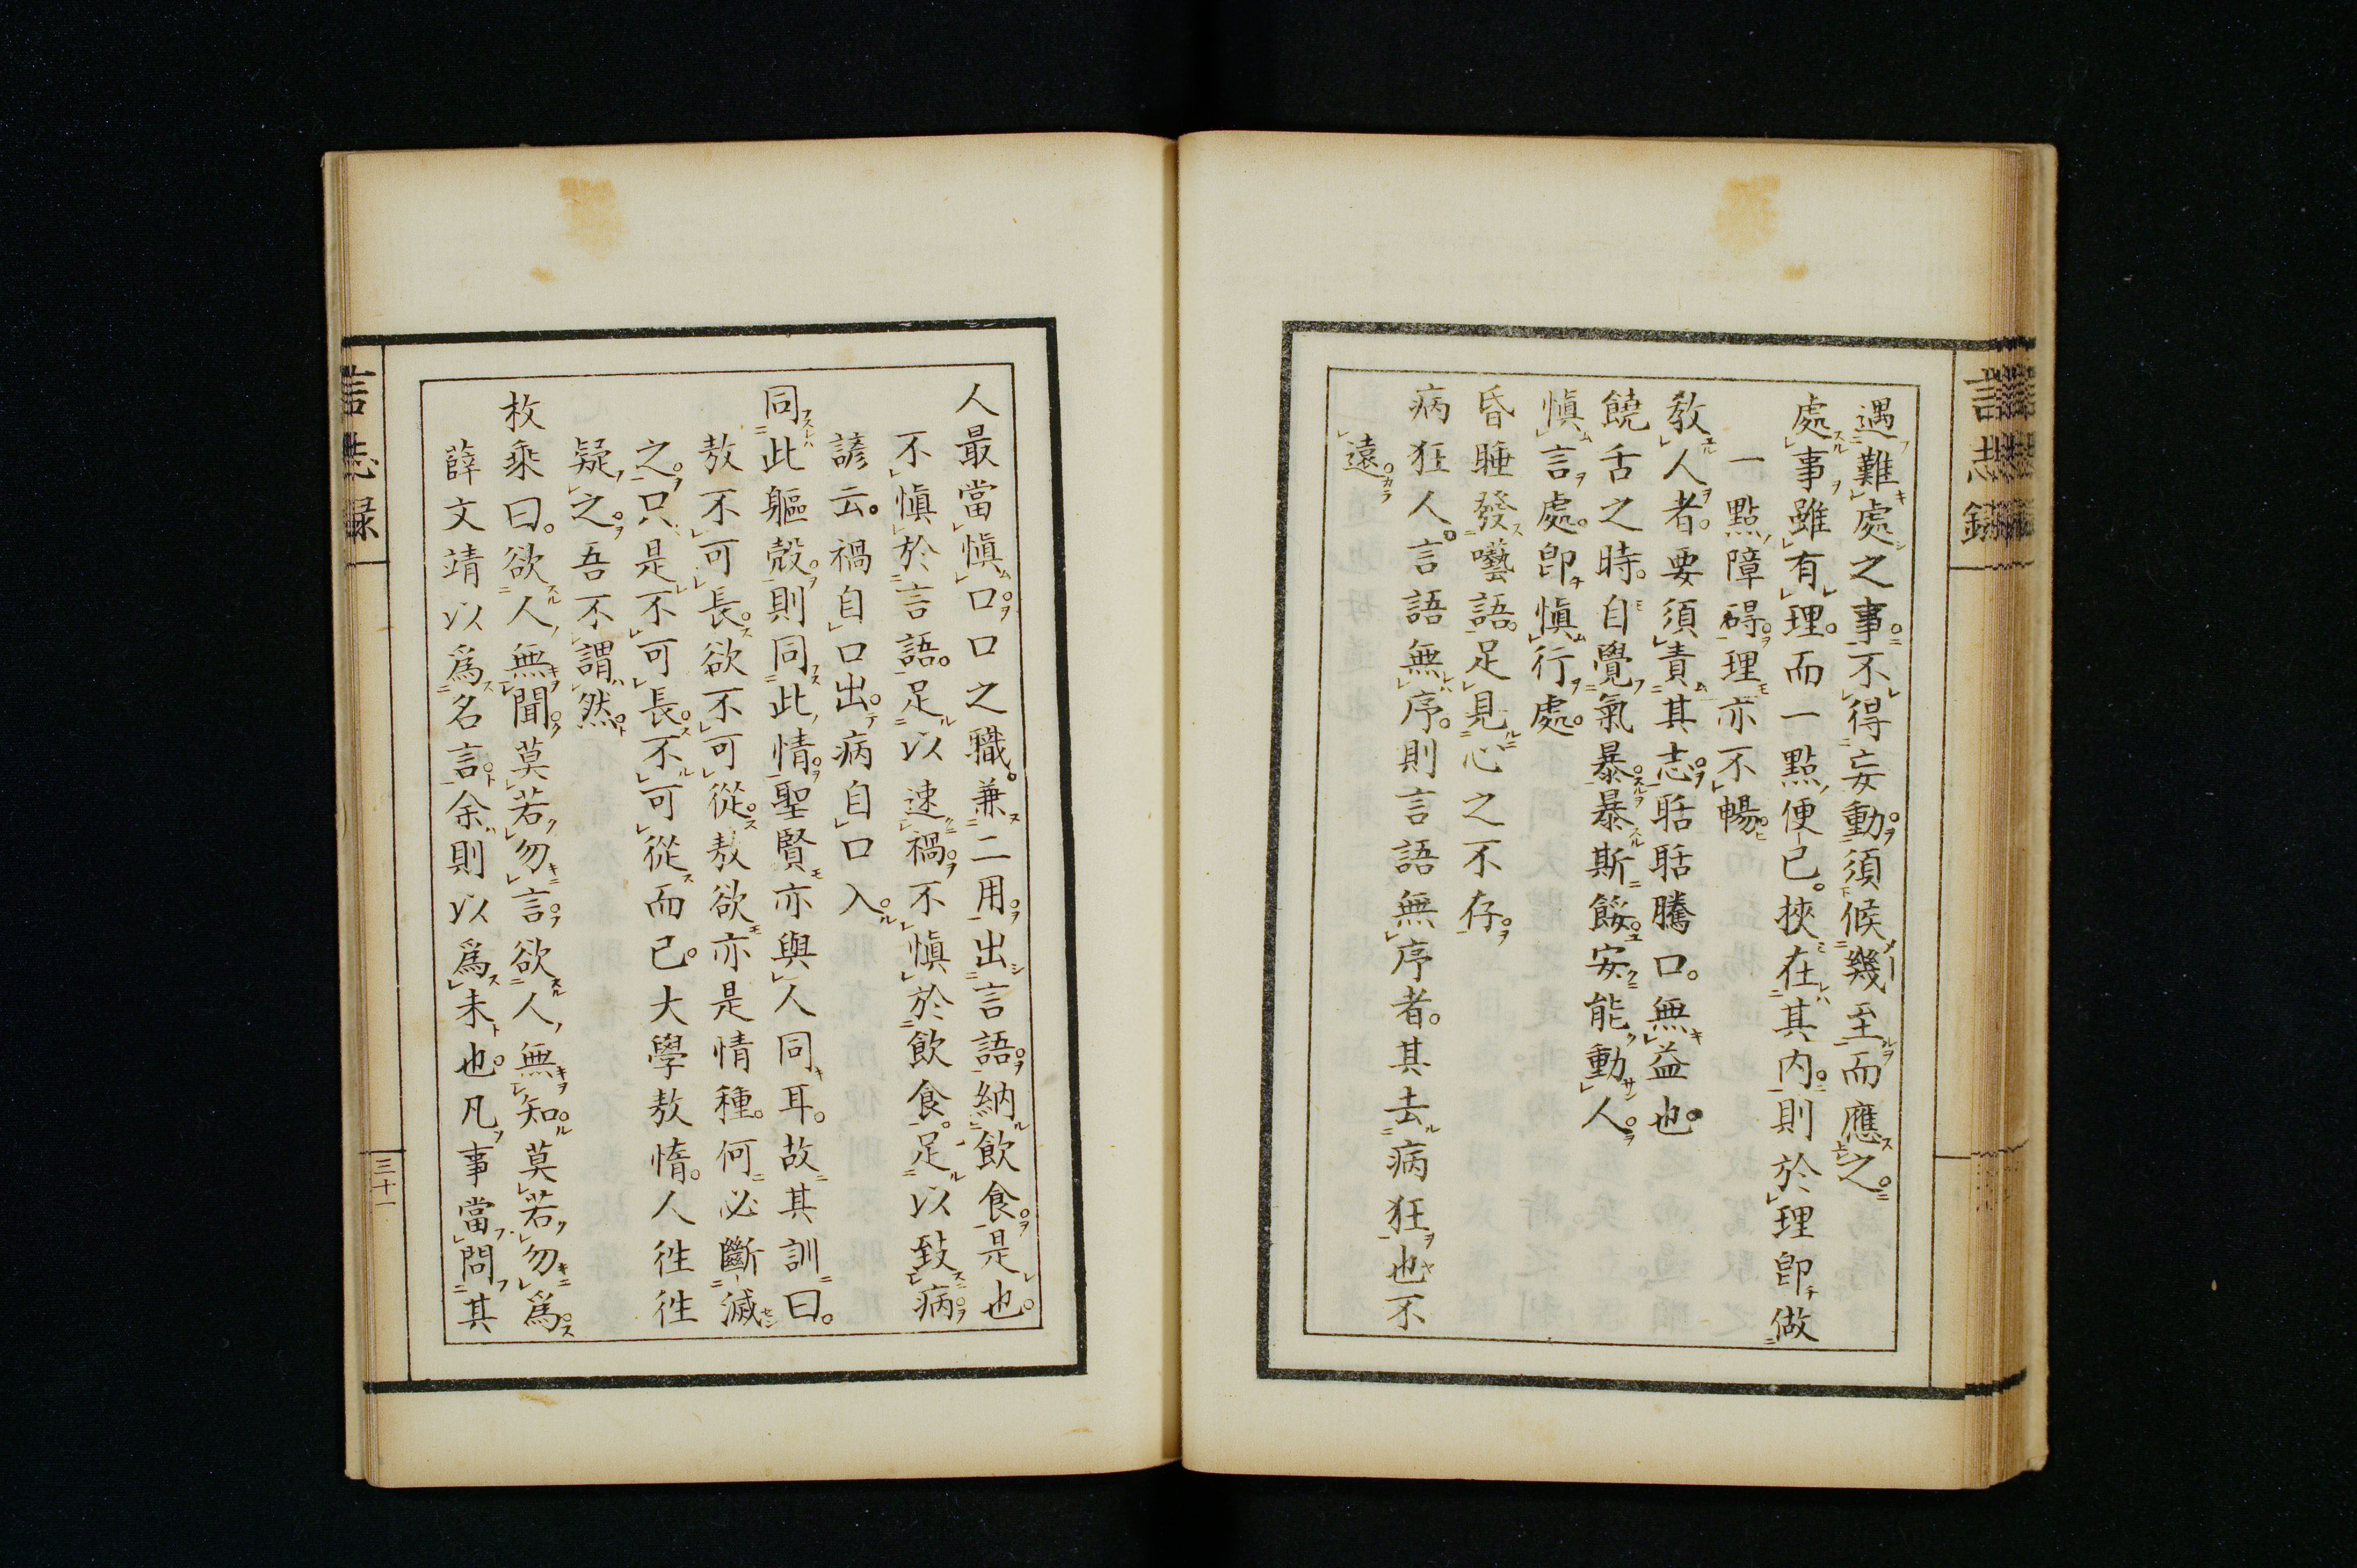 言志録
遇難處之事不得妄動須候幾至而應之
處事雖有理而一點便己挾在其内則於理即做
一點障碍理亦不暢
教人者要須責其志聒聒騰口無益也
饒舌之時自覺氣暴暴斯餒安能動人
愼言處即愼行處
昏睡發囈語足見心之不存
病狂人言語無序則言語無序者其去病狂也不
遠
人最當愼口口之職兼二用出言語納飲食是也
不愼於言語足以速禍不愼於飲食足以致病
諺云禍自口出病自口入
同此軀殼則同此情聖賢亦與人同耳故其訓曰
敖不可長欲不可從敖欲亦是情種何必斷滅
之只是不可長不可從而已大學敖惰人徃徃
疑之吾不謂然
枚乘曰欲人無聞莫若勿言欲人無知莫若勿爲
薛文靖以爲名言余則以爲未也凡事當問其
言志録
三十一